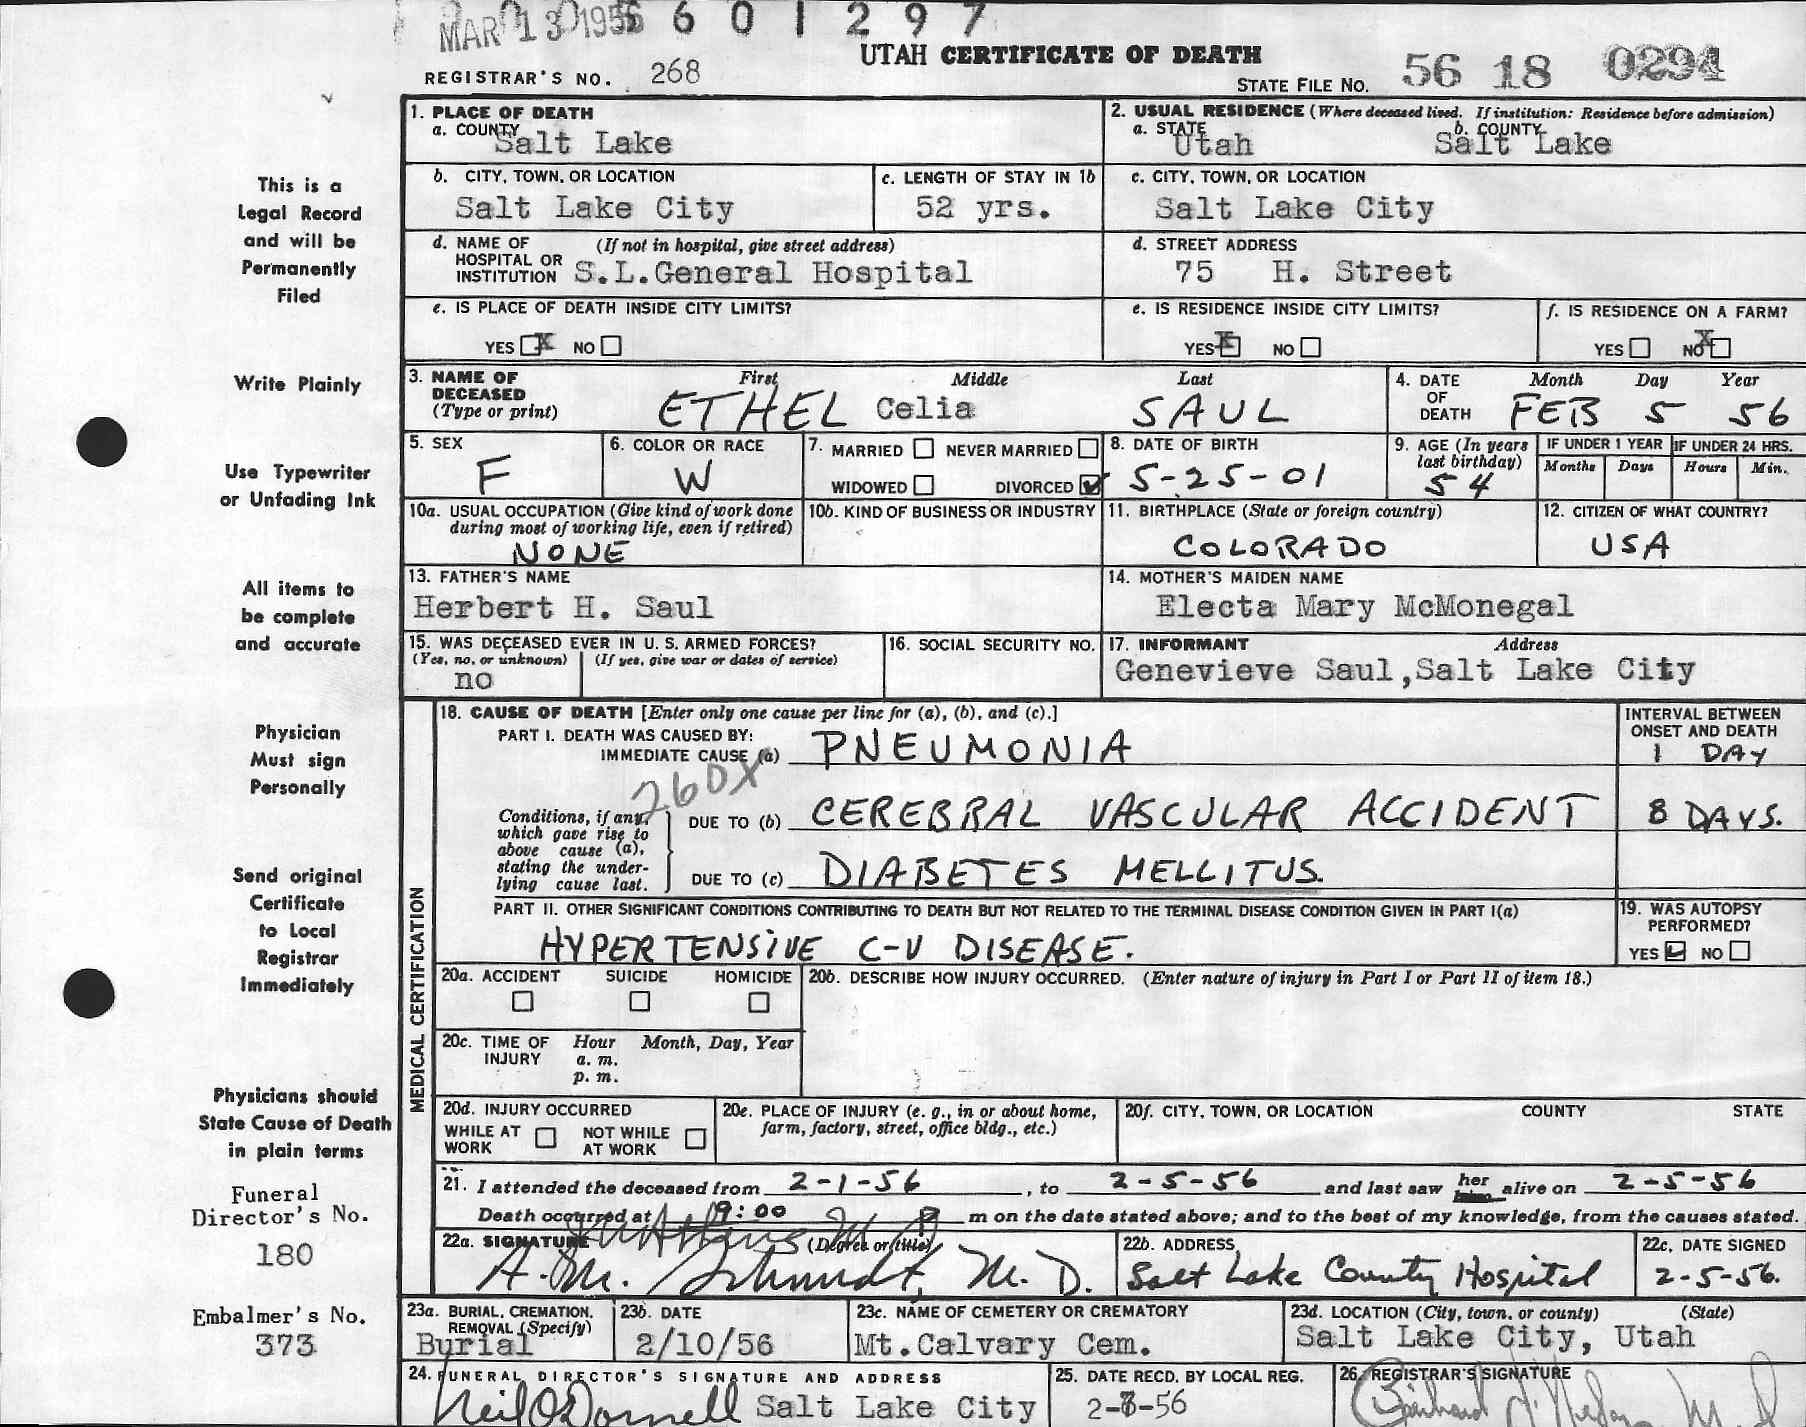 MAR 13 1956 6 0 1 2 9 7
UTAH CERTIFICATE OF DEATH
REGISTRAR'S NO. 268
STATE FILE NO. 56 18 0294
1. PLACE OF DEATH
a. COUNTY Salt Lake
2. USUAL RESIDENCE (Where deceased lived. If institution: Residence before admission)
a. STATE Utah b. COUNTY Salt Lake
This is a Legal Record and will be Permanently Filed
b. CITY, TOWN, OR LOCATION Salt Lake City
c. LENGTH OF STAY IN 1b 52 yrs.
c. CITY, TOWN, OR LOCATION Salt Lake City
d. NAME OF HOSPITAL OR INSTITUTION (If not in hospital, give street address) S.L.General Hospital
d. STREET ADDRESS 75 H. Street
e. IS PLACE OF DEATH INSIDE CITY LIMITS?
YES X NO
e. IS RESIDENCE INSIDE CITY LIMITS?
YES X NO
f. IS RESIDENCE ON A FARM?
YES NO X
Write Plainly
3. NAME OF DECEASED (Type or print) First Middle Last
ETHEL Celia SAUL
4. DATE OF DEATH Month Day Year
FEB 5 56
5. SEX F
6. COLOR OR RACE W
7. MARRIED NEVER MARRIED
WIDOWED DIVORCED
8. DATE OF BIRTH 5-25-01
9. AGE (In years last birthday) 54
IF UNDER 1 YEAR Months Days
IF UNDER 24 HRS. Hours Min.
Use Typewriter or Unfading Ink
10a. USUAL OCCUPATION (Give kind of work done during most of working life, even if retired) NONE
10b. KIND OF BUSINESS OR INDUSTRY
11. BIRTHPLACE (State or foreign country) COLORADO
12. CITIZEN OF WHAT COUNTRY? USA
All items to be complete and accurate
13. FATHER'S NAME Herbert H. Saul
14. MOTHER'S MAIDEN NAME Electa Mary McMonegal
15. WAS DECEASED EVER IN U. S. ARMED FORCES?
(Yes, no, or unknown) (If yes, give war or dates of service)
no
16. SOCIAL SECURITY NO.
17. INFORMANT Address
Genevieve Saul,Salt Lake City
MEDICAL CERTIFICATION
18. CAUSE OF DEATH [Enter only one cause per line for (a), (b), and (c).]
INTERVAL BETWEEN ONSET AND DEATH
PART I. DEATH WAS CAUSED BY:
IMMEDIATE CAUSE (a) PNEUMONIA 1 DAY
Physician Must sign Personally
260X
Conditions, if any, which gave rise to above cause (a), stating the underlying cause last.
DUE TO (b) CEREBRAL VASCULAR ACCIDENT 8 DAYS.
DUE TO (c) DIABETES MELLITUS.
Send original Certificate to Local Registrar Immediately
PART II. OTHER SIGNIFICANT CONDITIONS CONTRIBUTING TO DEATH BUT NOT RELATED TO THE TERMINAL DISEASE CONDITION GIVEN IN PART I(a)
HYPERTENSIVE C-V DISEASE.
19. WAS AUTOPSY PERFORMED?
YES NO
20a. ACCIDENT SUICIDE HOMICIDE
20b. DESCRIBE HOW INJURY OCCURRED. (Enter nature of injury in Part I or Part II of item 18.)
20c. TIME OF INJURY Hour Month, Day, Year
a. m.
p. m.
Physicians should State Cause of Death in plain terms
20d. INJURY OCCURRED
WHILE AT WORK NOT WHILE AT WORK
20e. PLACE OF INJURY (e. g., in or about home, farm, factory, street, office bldg., etc.)
20f. CITY, TOWN, OR LOCATION COUNTY STATE
21. I attended the deceased from 2-1-56, to 2-5-56 and last saw her alive on 2-5-56
Death occurred at 9:00 P m on the date stated above; and to the best of my knowledge, from the causes stated.
Funeral Director's No.
180
22a. SIGNATURE (Degree or title)
A. M. Schmidt, M. D.
22b. ADDRESS Salt Lake County Hospital
22c. DATE SIGNED 2-5-56.
Embalmer's No.
373
23a. BURIAL, CREMATION, REMOVAL (Specify) Burial
23b. DATE 2/10/56
23c. NAME OF CEMETERY OR CREMATORY Mt.Calvary Cem.
23d. LOCATION (City, town, or county) (State) Salt Lake City, Utah
24. FUNERAL DIRECTOR'S SIGNATURE AND ADDRESS
Neil O'Donnell Salt Lake City
25. DATE RECD. BY LOCAL REG.
26. REGISTRAR'S SIGNATURE